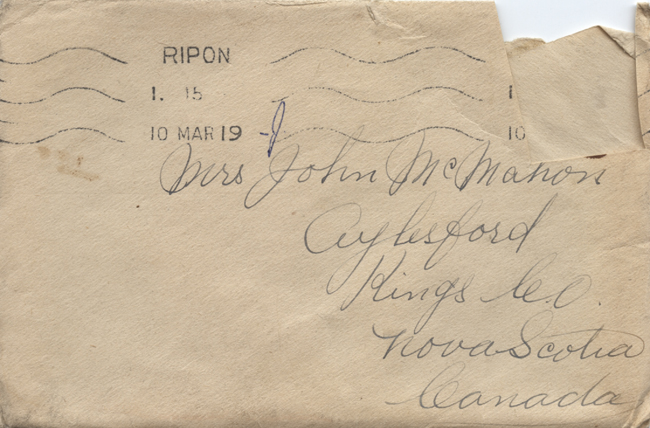 RIPON
1. 15
1
10 MAR 19
10
Mrs John McMahon
Aylesford
Kings Co.
Nova Scotia
Canada